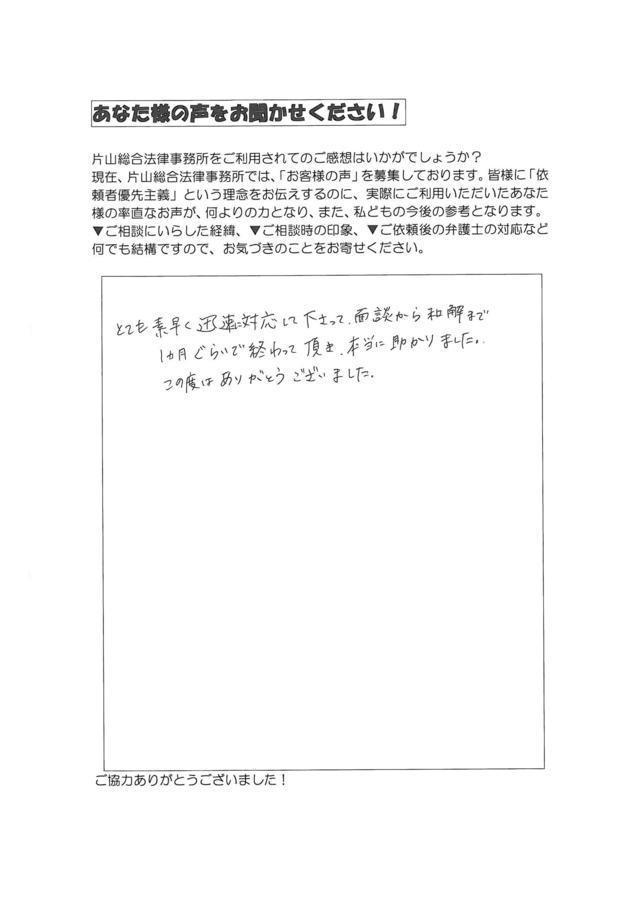 あなた様の声をお聞かせください！
片山総合法律事務所をご利用されてのご感想はいかがでしょうか？
現在、片山総合法律事務所では、「お客様の声」を募集しております。皆様に「依
頼者優先主義」という理念をお伝えするのに、実際にご利用いただいたあなた
様の率直なお声が、何よりの力となり、また、私どもの今後の参考となります。
▼ご相談にいらした経緯、▼ご相談時の印象、▼ご依頼後の弁護士の対応など
何でも結構ですので、お気づきのことをお寄せください。
とても素早く迅速に対応して下さって、面談から和解まで
1ヵ月ぐらいで終わって頂き、本当に助かりました。
この度はありがとうございました。
ご協力ありがとうございました！